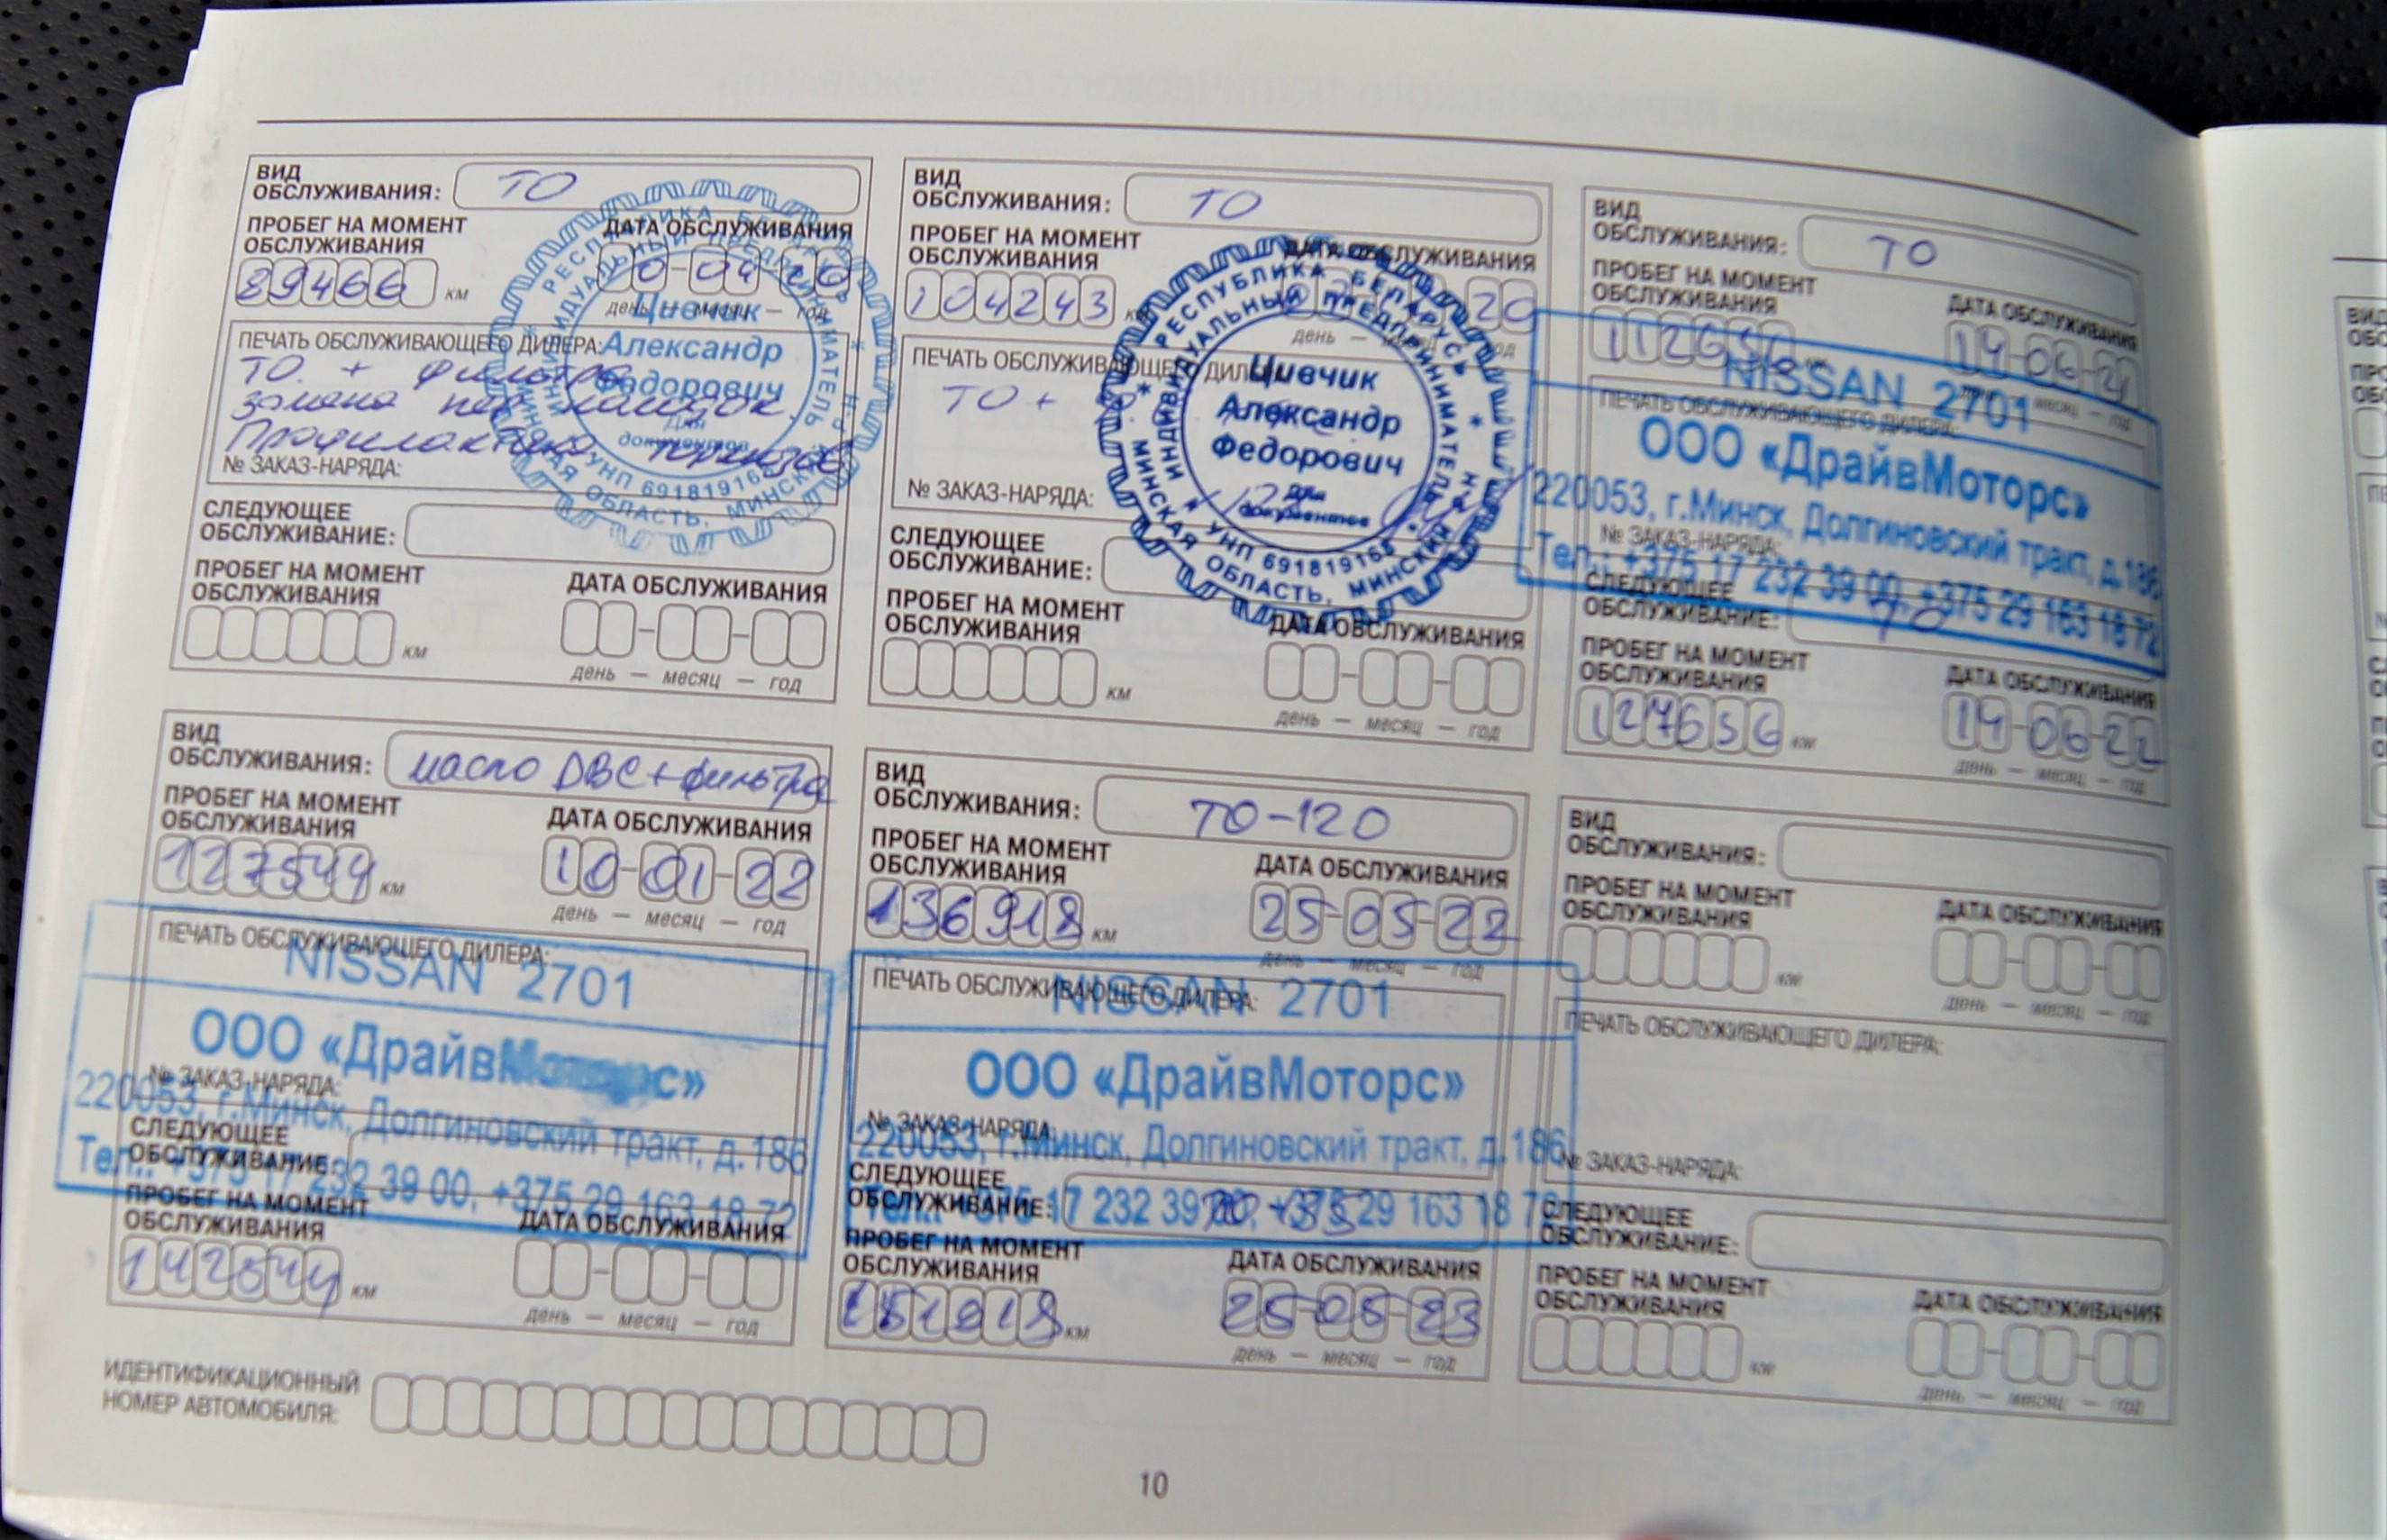 ВИД
ОБСЛУЖИВАНИЯ: ТО
ПРОБЕГ НА МОМЕНТ
ОБСЛУЖИВАНИЯ
ДАТА ОБСЛУЖИВАНИЯ
89466 км
04-20
день — месяц — год
ПЕЧАТЬ ОБСЛУЖИВАЮЩЕГО ДИЛЕРА:
ТО. + фильтра
замена пер колодок.
Профилактика
№ ЗАКАЗ-НАРЯДА:
РЕСПУБЛИКА БЕЛАРУСЬ
ИНДИВИДУАЛЬНЫЙ ПРЕДПРИНИМАТЕЛЬ
Цивчик
Александр
Федорович
Для
документов
УНП 691819165
МИНСКАЯ ОБЛАСТЬ, МИНСКИЙ Р-Н
СЛЕДУЮЩЕЕ
ОБСЛУЖИВАНИЕ:
ПРОБЕГ НА МОМЕНТ
ОБСЛУЖИВАНИЯ
ДАТА ОБСЛУЖИВАНИЯ
км
день — месяц — год
ВИД
ОБСЛУЖИВАНИЯ: ТО
ПРОБЕГ НА МОМЕНТ
ОБСЛУЖИВАНИЯ
ДАТА ОБСЛУЖИВАНИЯ
104243 км
20
день — месяц — год
ПЕЧАТЬ ОБСЛУЖИВАЮЩЕГО ДИЛЕРА:
ТО +
№ ЗАКАЗ-НАРЯДА:
РЕСПУБЛИКА БЕЛАРУСЬ
ИНДИВИДУАЛЬНЫЙ ПРЕДПРИНИМАТЕЛЬ
Цивчик
Александр
Федорович
Для
документов
УНП 691819165
МИНСКАЯ ОБЛАСТЬ, МИНСКИЙ Р-Н
СЛЕДУЮЩЕЕ
ОБСЛУЖИВАНИЕ:
ПРОБЕГ НА МОМЕНТ
ОБСЛУЖИВАНИЯ
ДАТА ОБСЛУЖИВАНИЯ
км
день — месяц — год
ВИД
ОБСЛУЖИВАНИЯ: ТО
ПРОБЕГ НА МОМЕНТ
ОБСЛУЖИВАНИЯ
ДАТА ОБСЛУЖИВАНИЯ
112636 км
14-06-21
месяц — год
ПЕЧАТЬ ОБСЛУЖИВАЮЩЕГО ДИЛЕРА:
NISSAN 2701
ООО «ДрайвМоторс»
220053, г.Минск, Долгиновский тракт, д.186
Тел.: +375 17 232 39 00, +375 29 163 18 72
№ ЗАКАЗ-НАРЯДА:
СЛЕДУЮЩЕЕ
ОБСЛУЖИВАНИЕ: ТО
ПРОБЕГ НА МОМЕНТ
ОБСЛУЖИВАНИЯ
ДАТА ОБСЛУЖИВАНИЯ
127636 км
14-06-22
день — месяц — год
ВИД
ОБСЛУЖИВАНИЯ: масло ДВС + фильтра
ПРОБЕГ НА МОМЕНТ
ОБСЛУЖИВАНИЯ
ДАТА ОБСЛУЖИВАНИЯ
127544 км
10-01-22
день — месяц — год
ПЕЧАТЬ ОБСЛУЖИВАЮЩЕГО ДИЛЕРА:
NISSAN 2701
ООО «ДрайвМоторс»
№ ЗАКАЗ-НАРЯДА:
220053, г.Минск, Долгиновский тракт, д.186
Тел.: +375 17 232 39 00, +375 29 163 18 72
СЛЕДУЮЩЕЕ
ОБСЛУЖИВАНИЕ:
ПРОБЕГ НА МОМЕНТ
ОБСЛУЖИВАНИЯ
ДАТА ОБСЛУЖИВАНИЯ
142544 км
день — месяц — год
ВИД
ОБСЛУЖИВАНИЯ: ТО-120
ПРОБЕГ НА МОМЕНТ
ОБСЛУЖИВАНИЯ
ДАТА ОБСЛУЖИВАНИЯ
136918 км
25-05-22
день — месяц — год
ПЕЧАТЬ ОБСЛУЖИВАЮЩЕГО ДИЛЕРА:
NISSAN 2701
ООО «ДрайвМоторс»
№ ЗАКАЗ-НАРЯДА:
220053, г.Минск, Долгиновский тракт, д.186
Тел.: +375 17 232 39 00, +375 29 163 18 72
СЛЕДУЮЩЕЕ
ОБСЛУЖИВАНИЕ:
ПРОБЕГ НА МОМЕНТ
ОБСЛУЖИВАНИЯ
ДАТА ОБСЛУЖИВАНИЯ
151918 км
25-05-23
день — месяц — год
ВИД
ОБСЛУЖИВАНИЯ:
ПРОБЕГ НА МОМЕНТ
ОБСЛУЖИВАНИЯ
ДАТА ОБСЛУЖИВАНИЯ
км
день — месяц — год
ПЕЧАТЬ ОБСЛУЖИВАЮЩЕГО ДИЛЕРА:
№ ЗАКАЗ-НАРЯДА:
СЛЕДУЮЩЕЕ
ОБСЛУЖИВАНИЕ:
ПРОБЕГ НА МОМЕНТ
ОБСЛУЖИВАНИЯ
ДАТА ОБСЛУЖИВАНИЯ
км
день — месяц — год
ИДЕНТИФИКАЦИОННЫЙ
НОМЕР АВТОМОБИЛЯ:
10